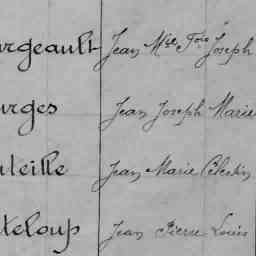 urgeault Jean Mie Fois Joseph
urges Jean Joseph Marie
uteille Jean Marie Célestin
teloup Jean Pierre Louis